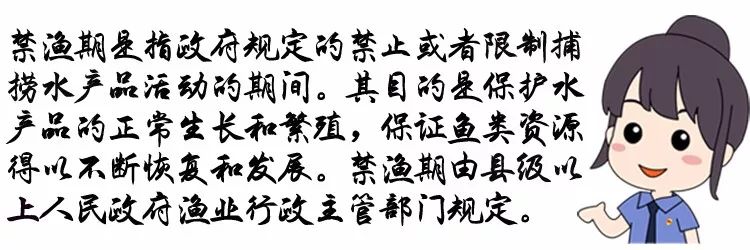 禁渔期是指政府规定的禁止或者限制捕
捞水产品活动的期间。其目的是保护水
产品的正常生长和繁殖，保证鱼类资源
得以不断恢复和发展。禁渔期由县级以
上人民政府渔业行政主管部门规定。